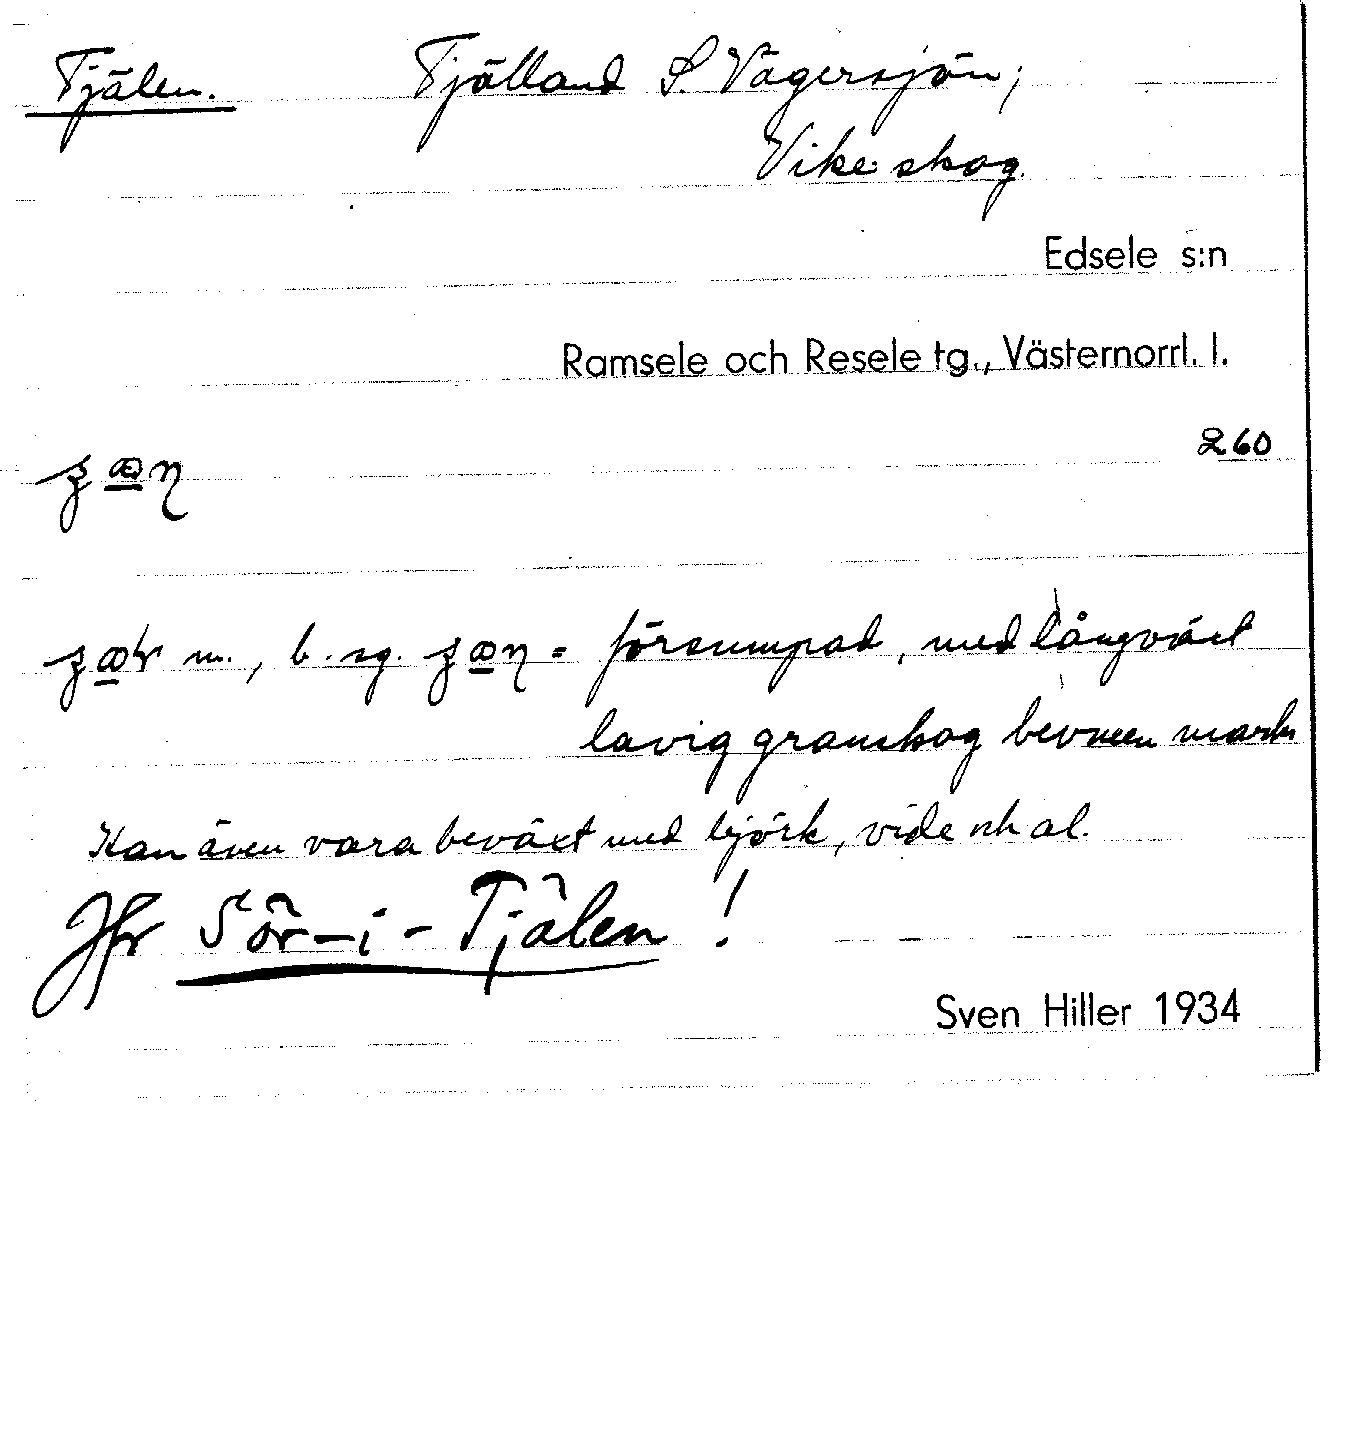 Tjälen. Tjälland S. Vägersjön;
Vike skog.
Edsele s:n
Ramsele och Resele tg., Västernorrl. l.
260
m., b. sg. = försumpad, med långväxt
lavig granskog beväxen mark
Kan även vara beväxt med björk, vide och al.
Jfr Sör-i-Tjälen !
Sven Hiller 1934